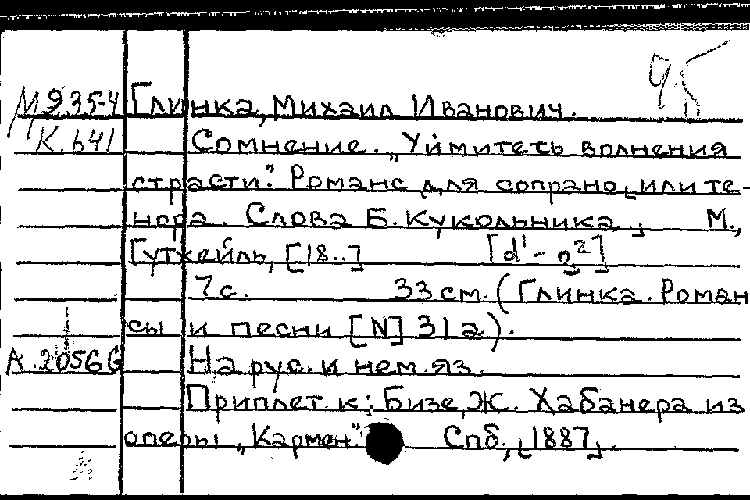 95
М 935-4 Глинка, Михаил Иванович.
К. 641 Сомнение. „Уймитесь волнения
страсти". Романс для сопрано или те-
нора. Слова Б. Кукольника. М.,
Гутхейль, [18..] [d¹ - g²]
7 с. 33 см. (Глинка. Роман
сы и песни [N] 31а).
А. 2056 б На рус. и нем. яз.
Приплет. к: Бизе, Ж. Хабанера из
оперы „Кармен". Спб., [1887].